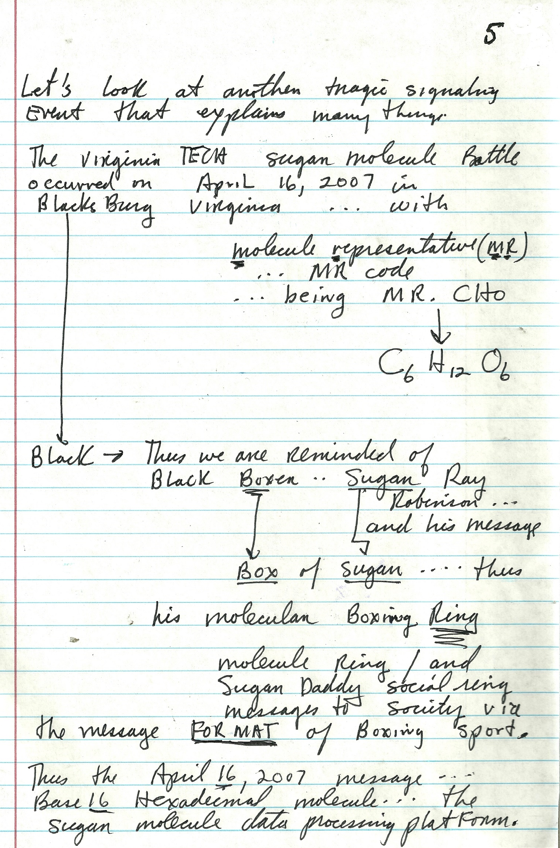 5
Let's look at another tragic signaling
Event that explains many things.
The Virginia TECH sugar molecule Battle
occurred on April 16, 2007 in
BlacksBurg Virginia ... with
molecule representative (MR)
... MR code
... being MR. CHO
C6 H12 O6
Black → Thus we are reminded of
Black Boxer .. Sugar Ray
Robinson ...
and his message
Box of Sugar .... thus
his molecular Boxing Ring
molecule Ring / and
Sugar Daddy social ring
messages to Society via
the message FORMAT of Boxing sport.
Thus the April 16, 2007 message ...
Base 16 Hexadecimal molecule... the
sugar molecule data processing platform.